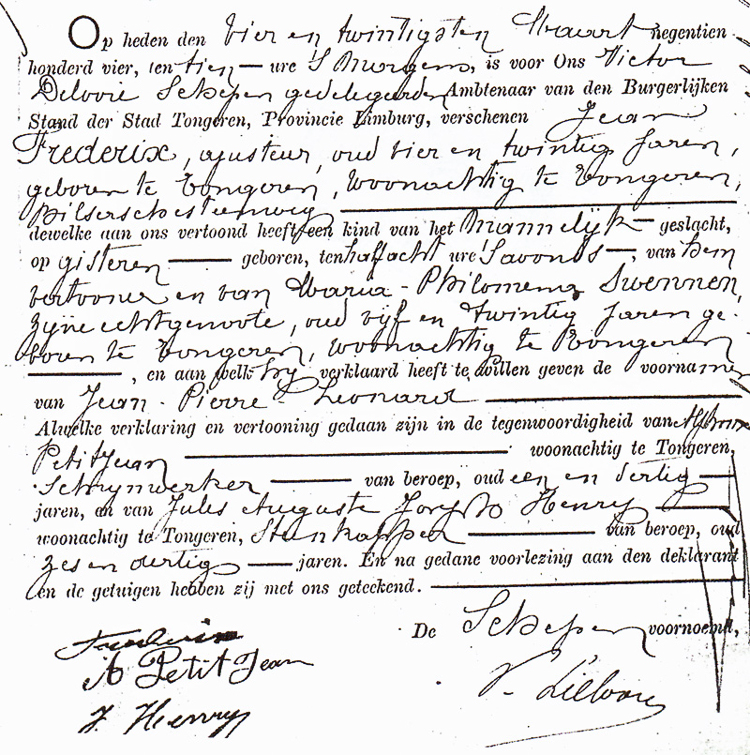 Op heden den vier en twintigsten Maart Negentien
honderd vier, ten tien ure 's Morgens, is voor Ons Victor
Schepen gedelegeerden Ambtenaar van den Burgerlijken
Stand der Stad Tongeren, Provincie Limburg, verschenen Jean
Frederix, ajusteur, oud vier en twintig Jaren,
geboren te Tongeren, woonachtig te Tongeren,
Bilsersteenweg
dewelke aan ons vertoond heeft een kind van het Mannelijk geslacht,
op gisteren geboren, ten half acht ure 's avonds, van hem
vertooner en van Maria-Philomena Swennen,
zijne echtgenoote, oud vijf en twintig Jaren ge-
boren te Tongeren, woonachtig te Tongeren
, en aan welk hij verklaard heeft te willen geven de voornamen
van Jean-Pierre-Leonard
Alwelke verklaring en vertooning gedaan zijn in de tegenwoordigheid van
PetitJean woonachtig te Tongeren,
Schrynwerker van beroep, oud een en dertig
jaren, en van Jules Auguste Joseph Henry
woonachtig te Tongeren, Steenkapper van beroep, oud
zes en dertig jaren. En na gedane voorlezing aan den deklarant
en de getuigen hebben zij met ons geteekend.
De Schepen voornoemd,
Frederix
A PetitJean
J. Henry